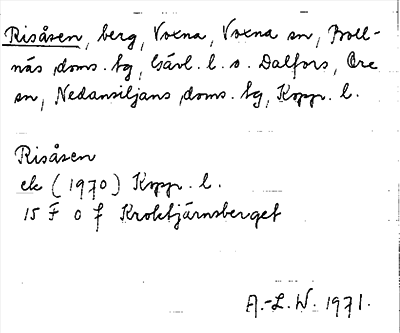 Risåsen, berg, Voxna, Voxna sn, Boll-
näs doms. hg, Gävl. l. o. Dalfors, Ore
sn, Nedansiljans doms. hg, Kopp. l.
Risåsen
ek (1970) Kopp. l.
15 F 0 f Kroktjärnsberget
A.-L. W. 1971.